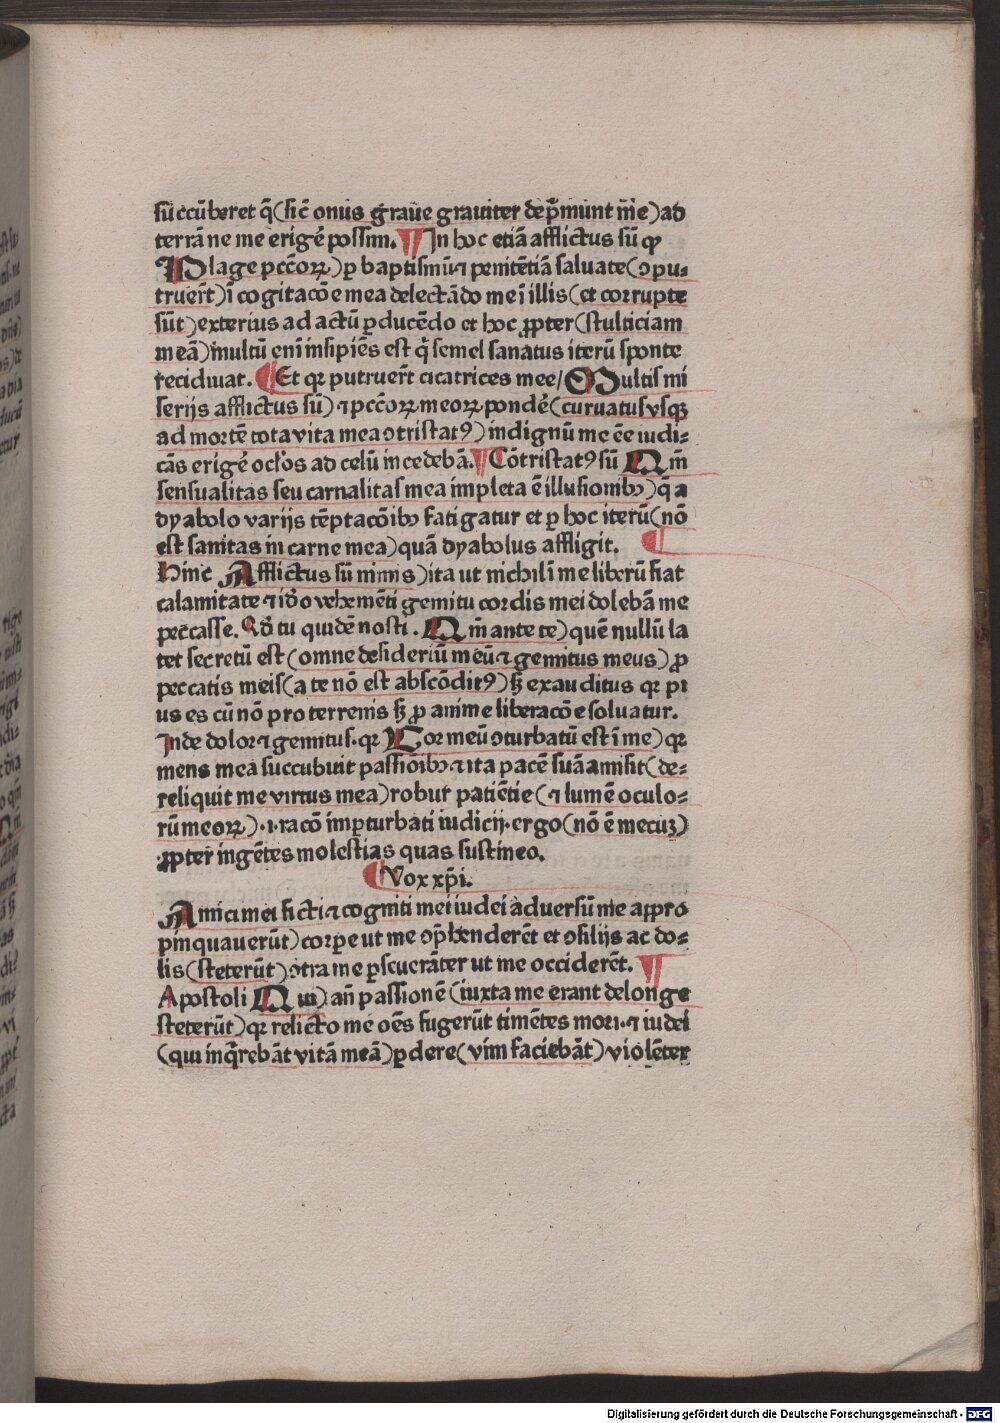 sūccūberet q̄(sic̄ onus graūe grauiter dep̄munt m̄e)ad
terrā ne me erigē possim. ¶In hoc etiā afflictus sū ꝙ
Plage pcc̄oꝝ)ꝑ baptismū ⁊ penitētiā saluate(ꝯpu⸗
truer̄t)ī cogitacōe mea delectādo me ī illis(et corrupte
sūt)exterius ad actū ꝑducēdo et hoc ꝓpter(stulticiam
meā)multū enī insipiēs est q̄ semel sanatus iterū sponte
recidiuat. ¶Et qꝛ putruer̄t cicatrices mee/Multis mi
serijs afflictus sū)⁊ pcc̄oꝝ meoꝝ pondē(curuatus vsqꝫ
ad mortē tota vita mea ꝯtristatꝰ)indignū me ēe iudi⸗
cās erigē ocłos ad celū incedebā.¶Cōtristatꝰ sū Qm̄
sensualitas seu carnalitas mea impleta ē illusionibꝫ)q̄ a
dyabolo varijs tēptacōibꝫ fatigatur et ꝑ hoc iterū(nō
est sanitas in carne mea)quā dyabolus affligit. ¶
Hinc Afflictus sū nimis)ita ut nichilī me liberū fiat
calamitate ⁊ id̄o vehemēti gemitu cordis mei dolebā me
peccasse. Ad̄ tu quidē nosti. Qm̄ ante te)quē nullū la
tet secretū est(omne desideriū meū ⁊ gemitus meus)ꝓ
peccatis meis(a te nō est abscōditꝰ)sꝫ exauditus qꝛ pi
us es cū nō pro terrenis sꝫ ꝓ anime liberacōe soluatur.
Inde dolor ⁊ gemitus. qꝛ Cor meū ꝯturbatū est ī me)qꝛ
mens mea succubuit passiōibꝫ ⁊ ita pacē suā amisit(de⸗
reliquit me virtus mea)robur patiētie(⁊ lumē oculo⸗
rū meoꝝ).i. racō imꝑturbati iudicij. ergo(nō ē mecuꝫ)
ꝓpter ingētes molestias quas sustineo.
¶Vox xp̄i.
Amici mei ficti ⁊ cogniti mei iudei aduersū me appro
pinquauerūt)corpe ut me ꝯp̄henderēt et ꝯsilijs ac do⸗
lis(steterūt)ꝯtra me ꝑseuerāter ut me occiderēt. ¶
Apostoli Qui)an̄ passionē(iuxta me erant de longe
steterūt)qꝛ relicto me oēs fugerūt timētes mori. ⁊ iudei
(qui inq̄rebāt vitā meā)ꝑdere(vim faciebāt)violēter
Digitalisierung gefördert durch die Deutsche Forschungsgemeinschaft - DFG